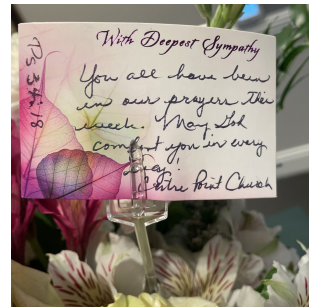 With Deepest Sympathy
Ps 34:18
You all have been
in our prayers this
week. May God
comfort you in every
way!
Centre Point Church